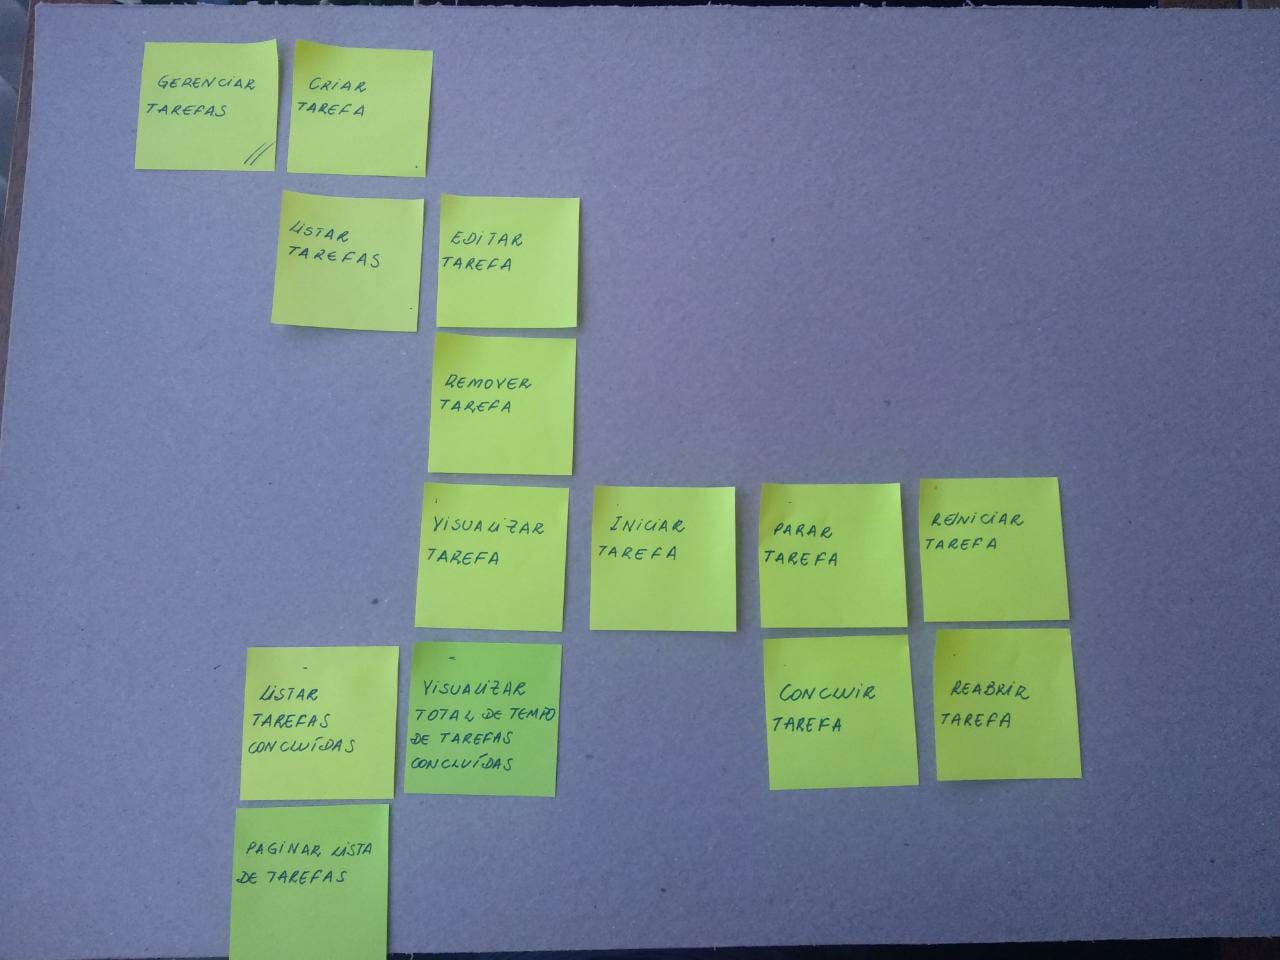 GERENCIAR
TAREFAS
CRIAR
TAREFA
LISTAR
TAREFAS
EDITAR
TAREFA
REMOVER
TAREFA
VISUALIZAR
TAREFA
INICIAR
TAREFA
PARAR
TAREFA
REINICIAR
TAREFA
LISTAR
TAREFAS
CONCLUÍDAS
VISUALIZAR
TOTAL DE TEMPO
DE TAREFAS
CONCLUÍDAS
CONCLUIR
TAREFA
REABRIR
TAREFA
PAGINAR LISTA
DE TAREFAS